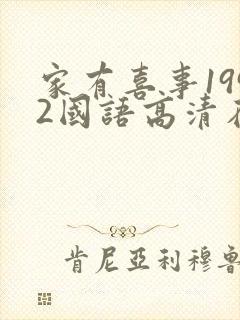 家有喜事199
2國語高清
肯尼亞利穆魯